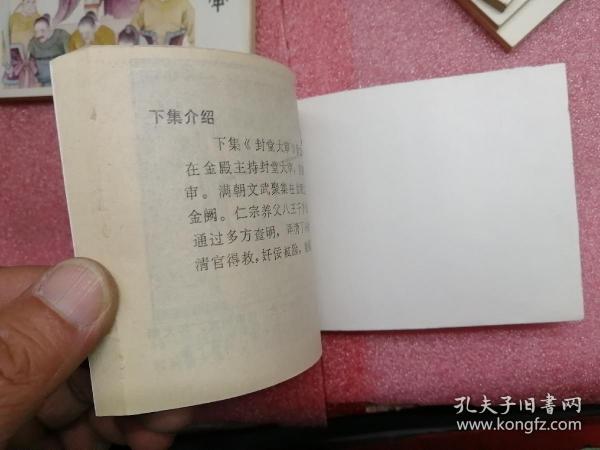 审
下集介绍
下集《封堂大审》
在金殿主持封堂大审,
审。满朝文武聚集在金
金阙。仁宗养父八王千
通过多方查明,弄清了
清官得救,奸佞被除,
孔夫子旧书网
www.kongfz.com